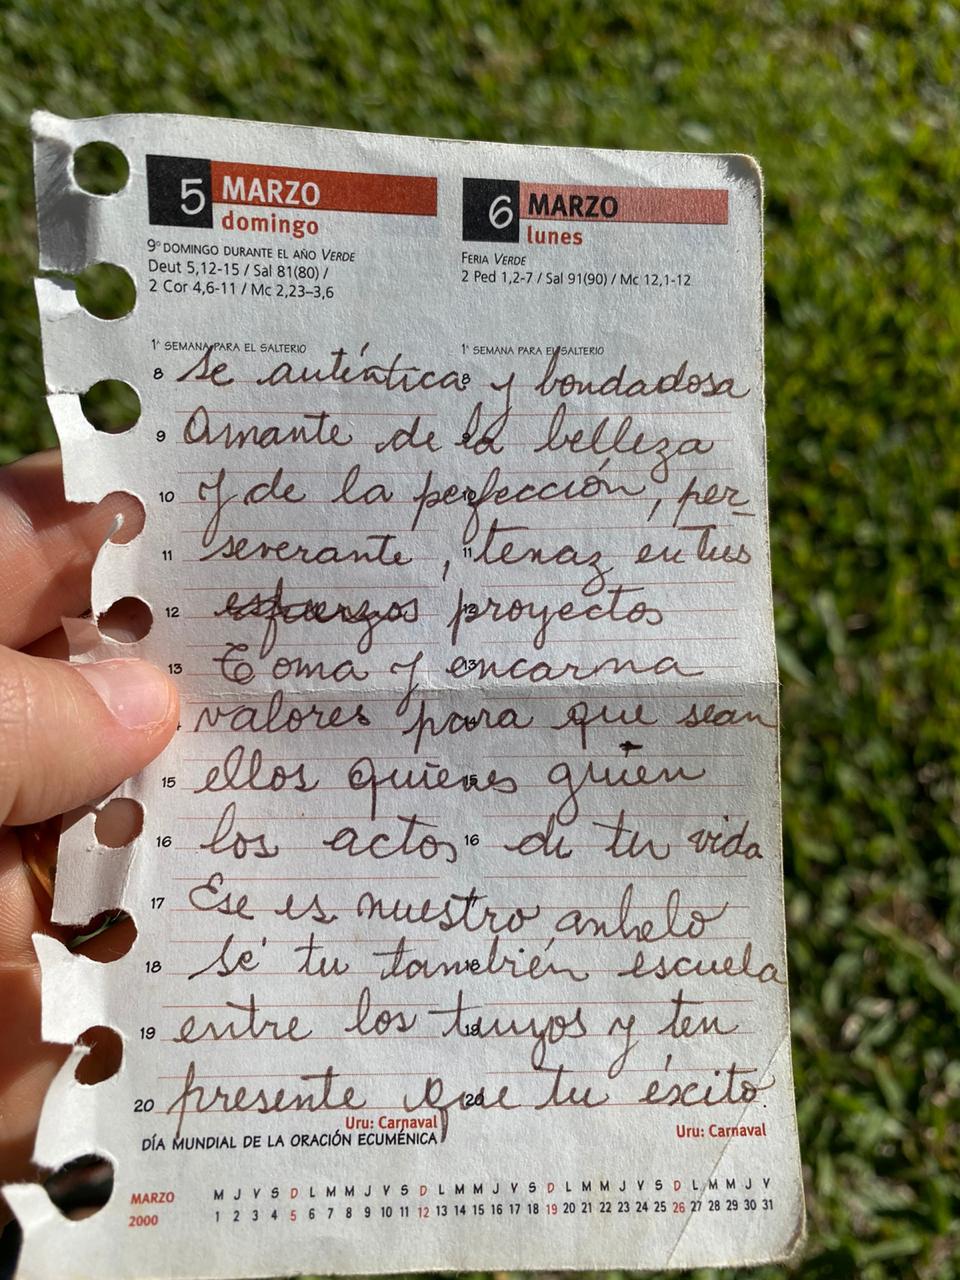 5 MARZO
domingo
9º DOMINGO DURANTE EL AÑO VERDE
Deut 5,12-15 / Sal 81(80) /
2 Cor 4,6-11 / Mc 2,23–3,6
6 MARZO
lunes
FERIA VERDE
2 Ped 1,2-7 / Sal 91(90) / Mc 12,1-12
1ª SEMANA PARA EL SALTERIO
1ª SEMANA PARA EL SALTERIO
8 Se auténtica 8 y bondadosa
9 Amante de la belleza
10 y de la perfección, per
11 severante, 11 tenaz en tus
12 esfuerzos proyectos
13 Toma y encarna
valores para que sean
15 ellos quienes guien
16 los actos 16 de tu vida
17 Ese es nuestro anhelo
18 Sé tu también escuela
19 entre los tuyos y ten
20 presente que tu éxito
Uru: Carnaval
DÍA MUNDIAL DE LA ORACIÓN ECUMÉNICA
Uru: Carnaval
MARZO M J V S D L M M J V S D L M M J V S D L M M J V S D L M M J V
2000 1 2 3 4 5 6 7 8 9 10 11 12 13 14 15 16 17 18 19 20 21 22 23 24 25 26 27 28 29 30 31